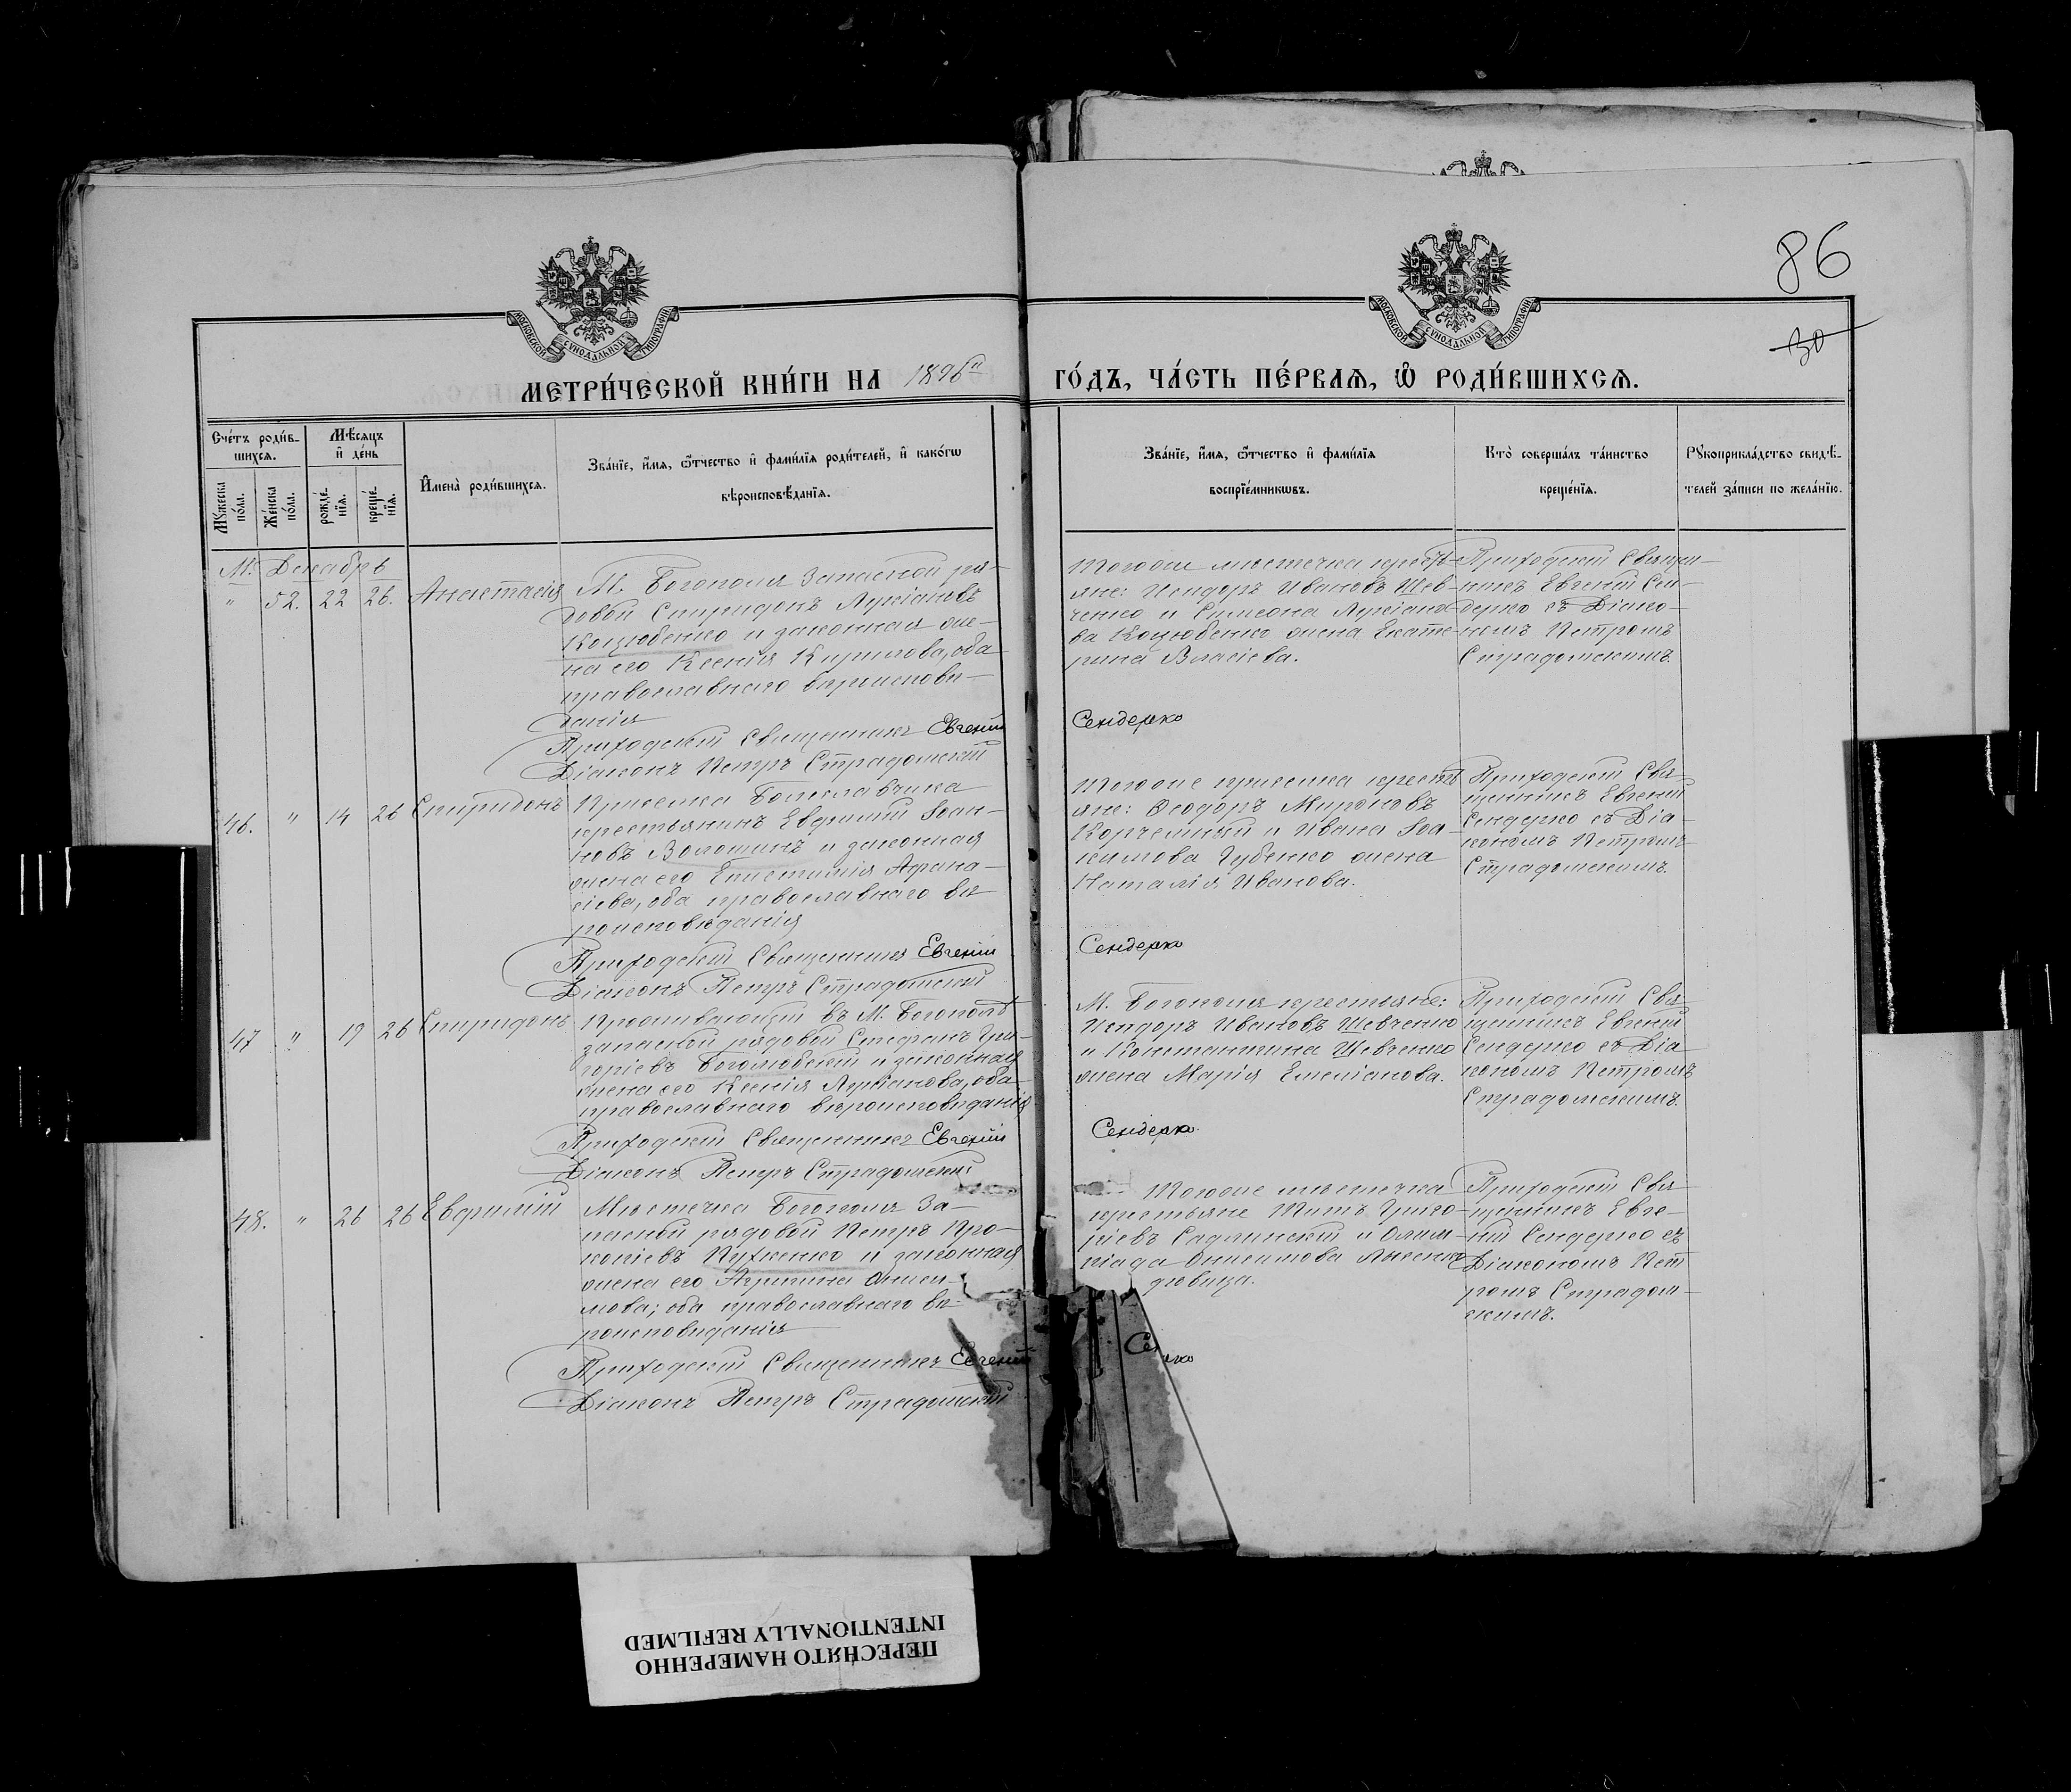 86
30
МОСКОВСКОЙ СУНОДАЛЬНОЙ ТИПОГРАФІИ
МОСКОВСКОЙ СУНОДАЛЬНОЙ ТИПОГРАФІИ
МЕТРИ́ЧЕСКОЙ КНИ́ГИ НА 1896й ГО́ДЪ, ЧА́СТЬ ПЕ́РВАѦ, Ѡ҆ РОДИ́ВШИХСѦ.
Сче́тъ роди́в-
шихсѧ.
Мѣ́сѧцъ
и҆ де́нь
Мꙋ́жеска
по́ла.
Же́нска
по́ла.
рожде́-
нїѧ.
креще́-
нїѧ.
И҆мена̀ роди́вшихсѧ.
Зва́нїе, и҆́мѧ, ѻ҆́тчество и҆ фами́лїѧ роди́телей, и҆ како́гѡ
вѣроисповѣ́данїѧ.
Зва́нїе, и҆́мѧ, ѻ҆́тчество и҆ фами́лїѧ
воспрїе́мникѡвъ.
Кто̀ соверша́лъ та́инство
креще́нїѧ.
Рꙋкоприкла́дство свидѣ́-
телей за́писи по жела́нїю.
М. Декабрь
" 52. 22 26. Анастасія
М. Богополя Запасной ря-
довой Спиридонъ Лукіановъ
Коцюбенко и законная же-
на его Ксенія Кирилова, оба
православнаго вѣроисповѣ-
данія
Приходскій Священникъ Евгеній
Сендерко
Діаконъ Петръ Страдомскій
Тогоже мѣстечка кресть-
яне: Исидоръ Ивановъ Шев-
ченко и Симеона Лукіано-
ва Коцюбенко жена Екате-
рина Власіева.
Приходскій Священ-
никъ Евгеній Сен-
дерко съ Діако-
номъ Петромъ
Страдомскимъ.
46. " 14 26 Спиридонъ
Приселка Болеславчика
крестьянинъ Евфимій Іоан-
новъ Волошинъ и законная
жена его Епистимія Афана-
сіева, оба православнаго вѣ
роисповѣданія
Приходскій Священникъ Евгеній
Сендерко
Діаконъ Петръ Страдомскій
Тогоже приселка кресть
яне: Ѳеодоръ Мироновъ
Корчемный и Ивана Іоа-
кимова Губенко жена
Наталія Иванова.
Приходскій Свя-
щенникъ Евгеній
Сендерко съ Діа-
кономъ Петромъ
Страдомскимъ.
47 " 19 26 Спиридонъ
Проживающій въ М. Богополѣ
запасной рядовой Стефанъ Гри-
горіевъ Боголюбскій и законная
жена его Ксенія Лукіанова, оба
православнаго вѣроисповѣданія
Приходскій Священникъ Евгеній
Сендерко
Діаконъ Петръ Страдомскій
М. Богополя крестьяне:
Исидоръ Ивановъ Шевченко
и Константина Шевченко
жена Марія Емеліанова.
Приходскій Свя-
щенникъ Евгеній
Сендерко съ Діа
кономъ Петромъ
Страдомскимъ.
48. " 26 26 Евфимій
Мѣстечка Богополя За-
пасной рядовой Петръ Про-
копіевъ и законная
жена его АгрипинаОниси-
мова; оба православнаго вѣ-
роисповѣданія
Приходскій Священникъ Евгеній
Діаконъ Петръ Страдомскій
Тогоже мѣстечка
крестьяне Титъ Григо-
ріевъ Садлинскій и Олим-
піада Онисимова
дѣвица.
Приходскій Свя
щенникъ Евге-
ній Сендерко съ
Діакономъ Пет
ромъ Страдом-
скимъ.
ПЕРЕСНЯТО НАМЕРЕННО
INTENTIONALLY REFILMED